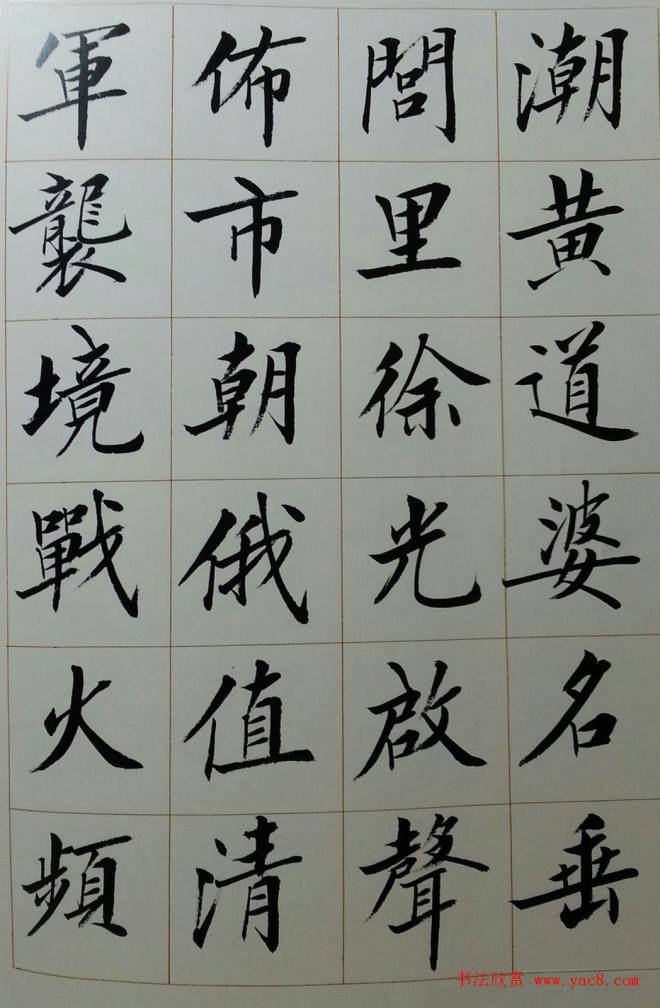 潮黄道婆名垂
閭里徐光啟聲
佈市朝俄值清
軍襲境戰火頻
书法欣赏 www.yac8.com